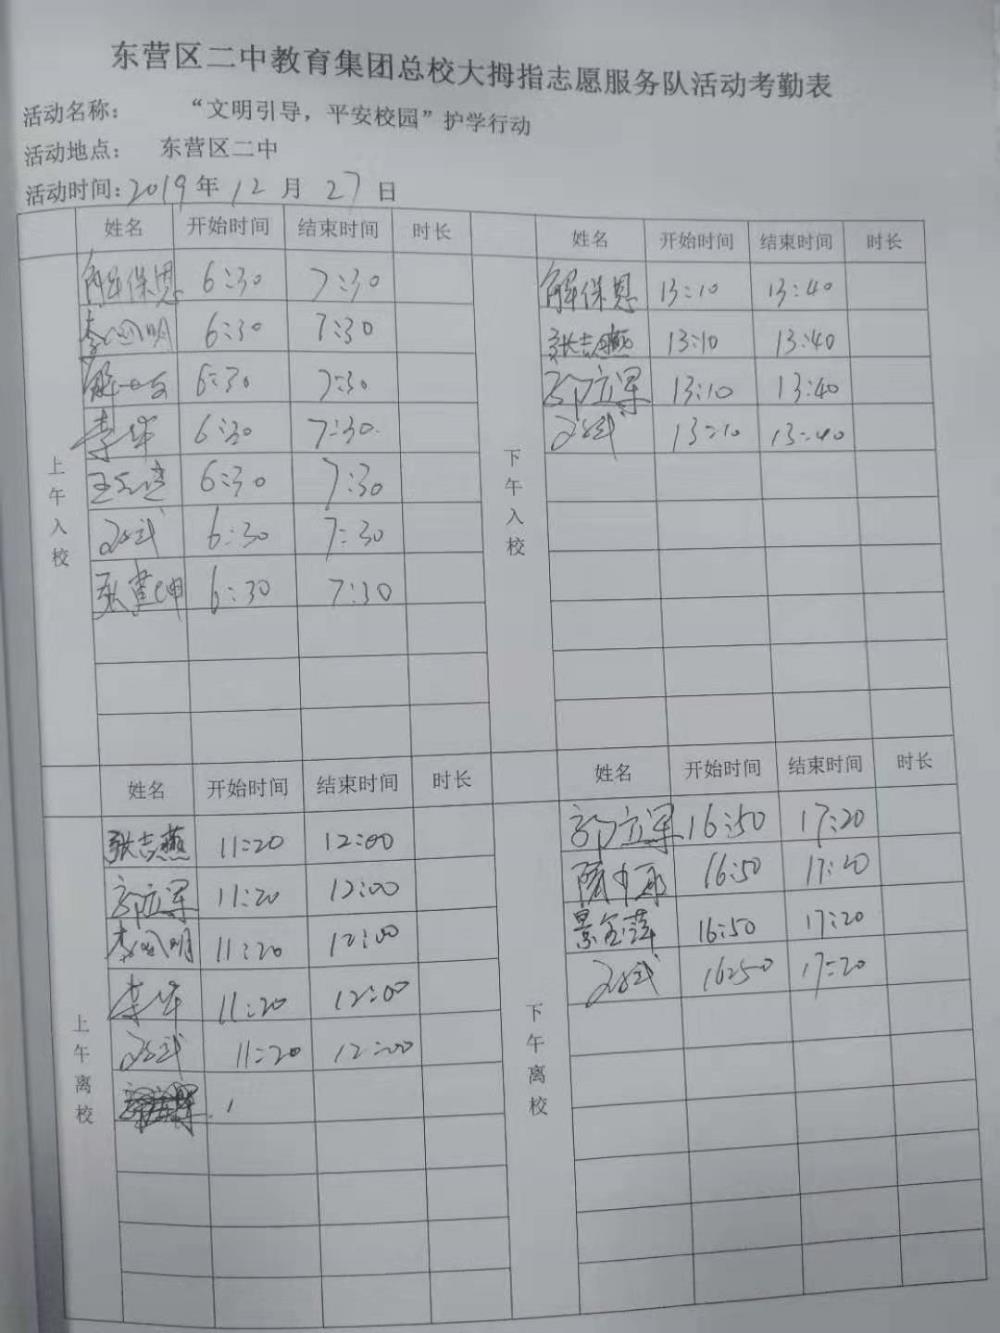 东营区二中教育集团总校大拇指志愿服务队活动考勤表
活动名称： “文明引导，平安校园”护学行动
活动地点： 东营区二中
活动时间：2019年12月27日
姓名 开始时间 结束时间 时长
上午入校
解保恩 6:30 7:30
李凤明 6:30 7:30
6:30 7:30
李华 6:30 7:30
6:30 7:30
6:30 7:30
张建坤 6:30 7:30
姓名 开始时间 结束时间 时长
下午入校
解保恩 13:10 13:40
张志燕 13:10 13:40
郭立军 13:10 13:40
13:10 13:40
姓名 开始时间 结束时间 时长
上午离校
张志燕 11:20 12:00
郭立军 11:20 12:00
李凤明 11:20 12:00
李华 11:20 12:00
11:20 12:00
姓名 开始时间 结束时间 时长
下午离校
郭立军 16:50 17:20
16:50 17:20
景金萍 16:50 17:20
1650 17:20